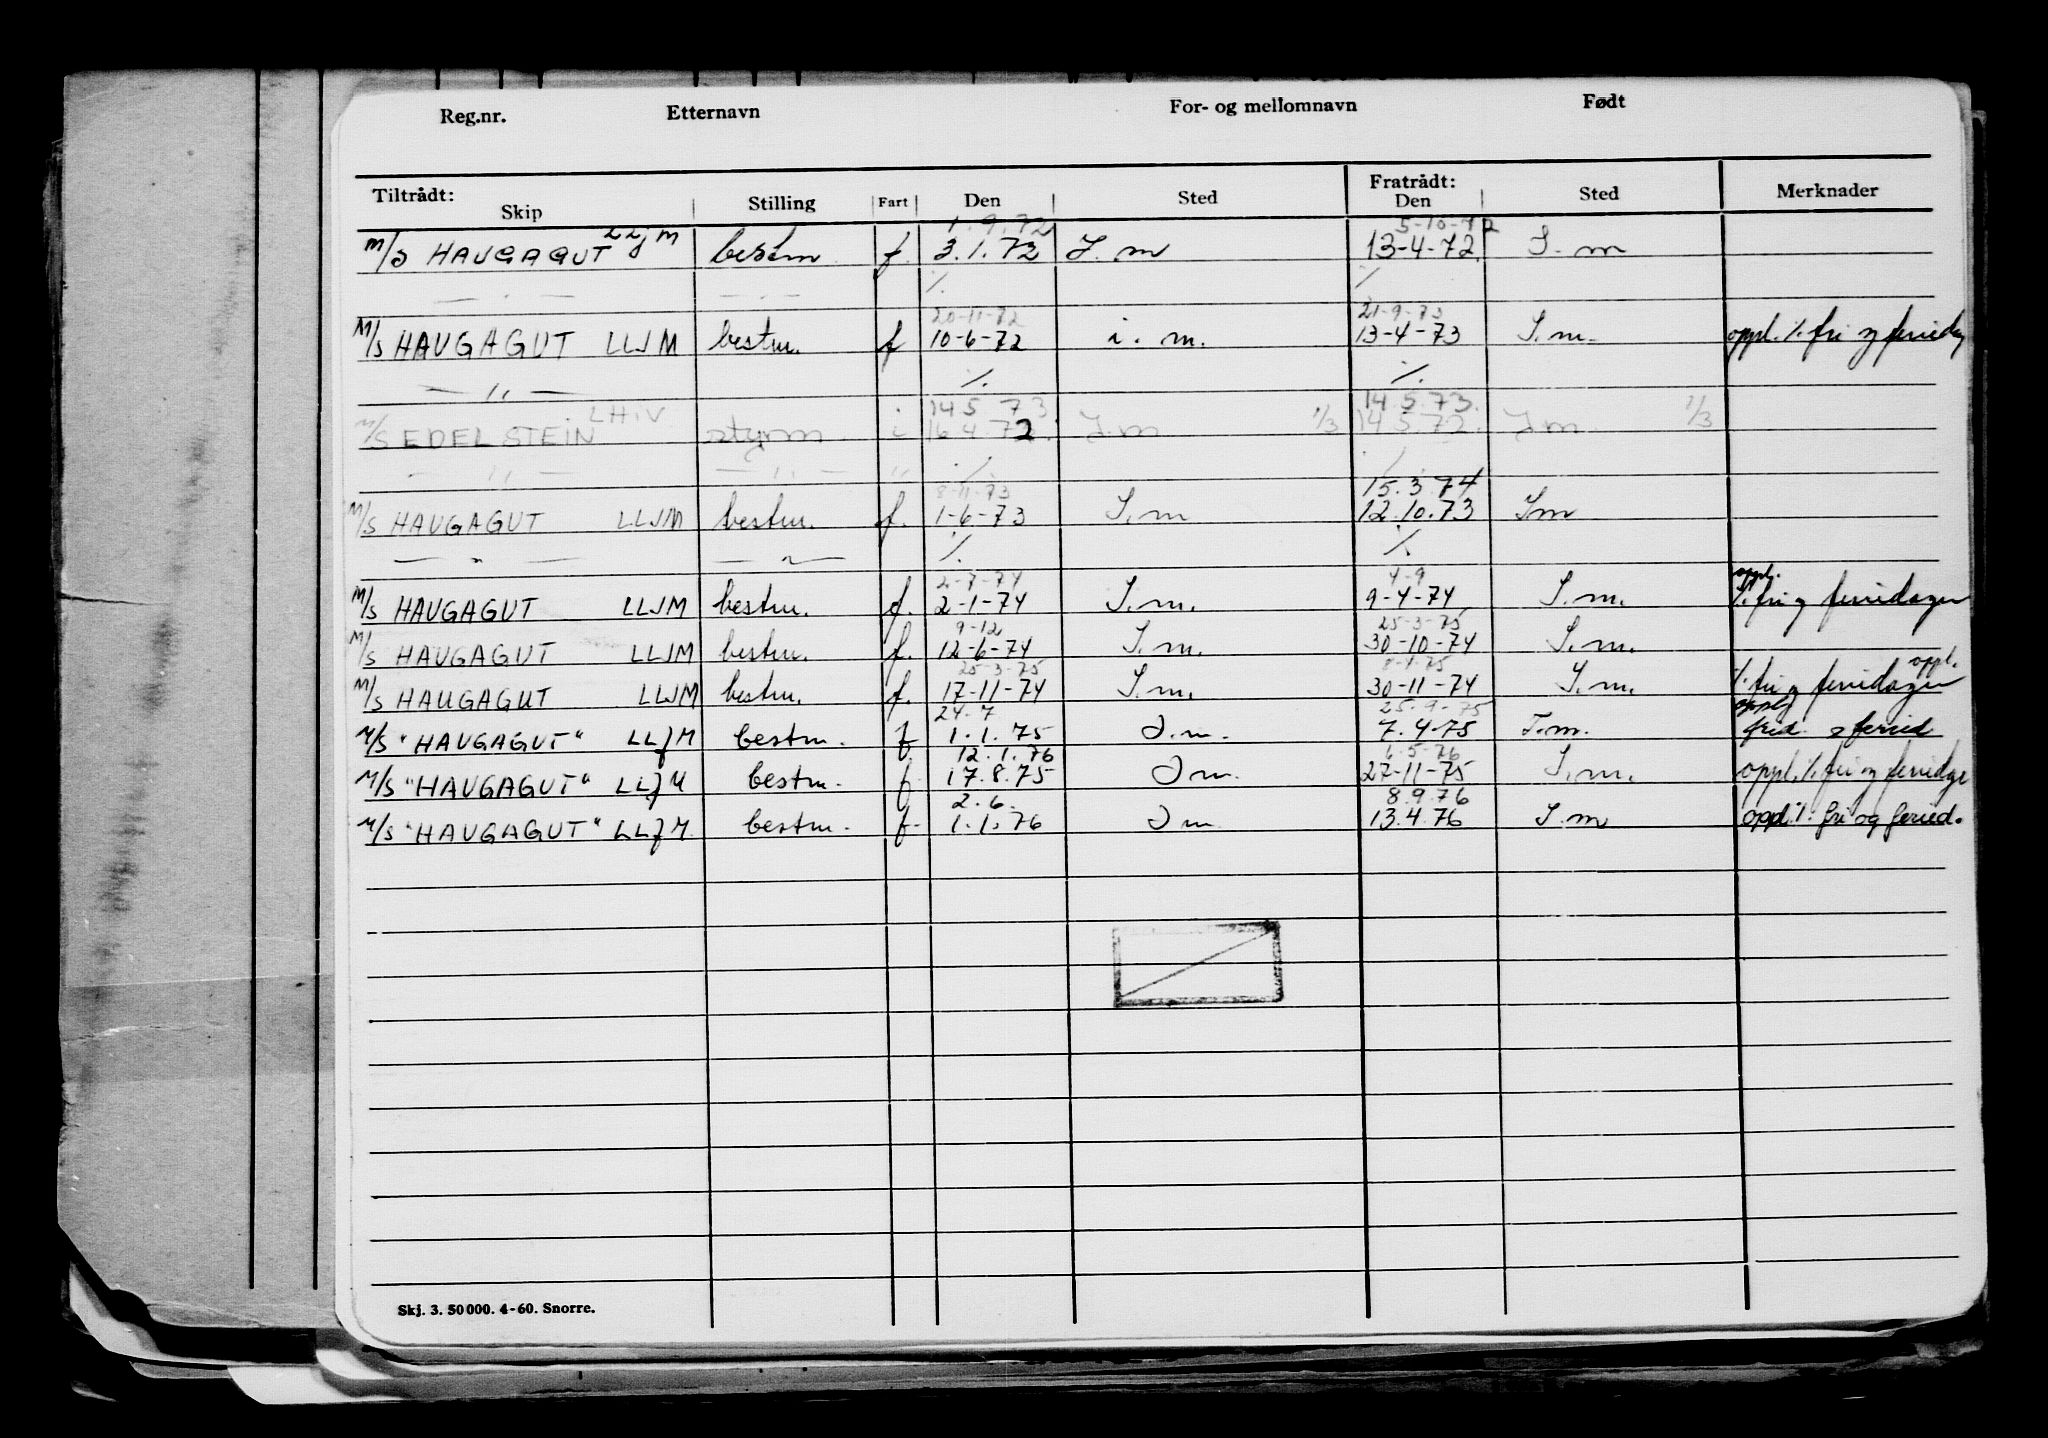 Reg.nr. Etternavn For- og mellomnavn Født
Tiltrådt: Fratrådt:
Skip Stilling Fart Den Sted Den Sted Merknader
1.9.72 5-10-72
M/S HAUGAGUT LLJM bestm f. 3.1.72 I.m 13-4-72 I.m
— " — — " — /. /.
20-11-72 21-9-73
M/S HAUGAGUT LLJM bestm. f 10-6-72 i.m. 13-4-73 I.m. oppl. /. fri og feriedag
— " — /. /.
LHIV i 14 5 73 14.5.73.
M/S EDELSTEIN styrm i 16 4.72. I.m 1/3 14 5.72. I m 1/3
— " — — " — " /. /.
8-11-73 15.3.74
M/S HAUGAGUT LLJM bestm. f. 1-6-73 I.m 12.10.73 Im
— " — — " — /. /.
2-7-74 4-9 oppl.
M/S HAUGAGUT LLJM bestm. f. 2-1-74 I.m. 9-4-74 I.m. /. fri og feriedager
9-12 25-3-75
M/S HAUGAGUT LLJM bestm. f. 12-6-74 I.m. 30-10-74 I.m.
25-3-75 8-4-75 oppl.
M/S HAUGAGUT LLJM bestm. f. 17-11-74 I.m. 30-11-74 I.m. /. fri og feriedager
24.7 25-9-75 oppl.
M/S "HAUGAGUT" LLJM bestm. f 1.1.75 I.m. 7.4-75 I.m. frid. og feried
12.1.76 6.5-76
M/S "HAUGAGUT" LLJM bestm. f 17.8.75 I m. 27-11-75 I.m. oppl. /. fri og feriedge
2.6. 8.9.76
M/S "HAUGAGUT" LLJM. bestm. f. 1.1.76 I m 13.4.76 I.m oppl. /. fri og feried.
Skj. 3. 50 000. 4-60. Snorre.